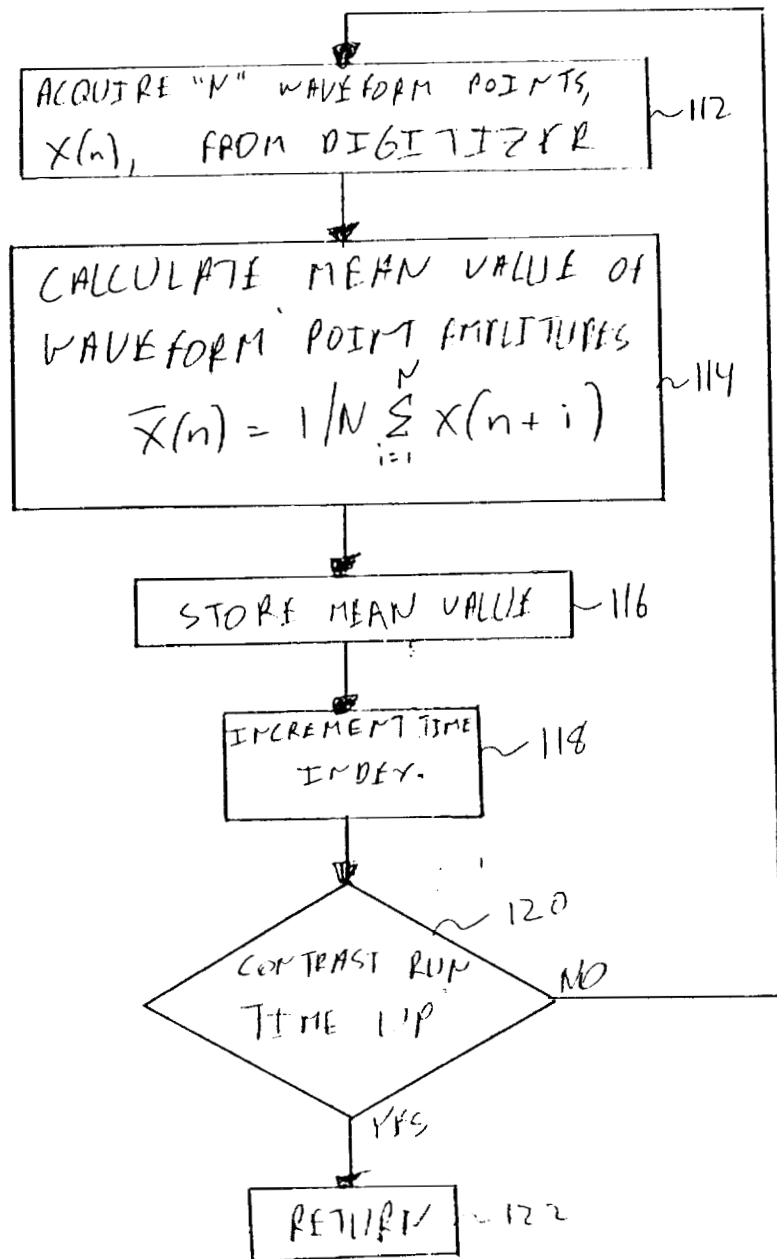 ACQUIRE "N" WAVEFORM POINTS,
X(n), FROM DIGITIZER
112
CALCULATE MEAN VALUE OF
WAVEFORM POINT AMPLITUDES
X̅(n) = 1/N Σ X(n+i)
N
i=1
114
STORE MEAN VALUE
116
INCREMENT TIME
INDEX.
118
120
CONTRAST RUN
TIME UP
NO
YES
RETURN
122